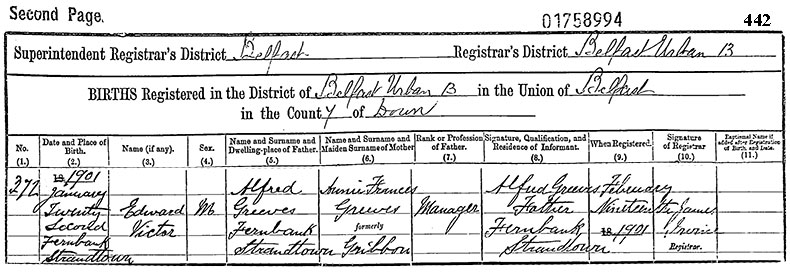 Second Page. 01758994 442
Superintendent Registrar's District Belfast Registrar's District Belfast Urban B
BIRTHS Registered in the District of Belfast Urban B in the Union of Belfast
in the County of Down
No. Date and Place of Birth. Name (if any). Sex. Name and Surname and Dwelling-place of Father. Name and Surname and Maiden Surname of Mother Rank or Profession of Father. Signature, Qualification, and Residence of Informant. When Registered. Signature of Registrar Baptismal Name if added after Registration of Birth, and Date.
(1.) (2.) (3.) (4.) (5.) (6.) (7.) (8.) (9.) (10.) (11.)
18 1901
272 January Alfred Annie Frances Alfred Greeves February
Twenty Edward M Greeves Greeves Manager Father Nineteenth James
Second Victor Fernbank formerly Fernbank 18 1901 Irvine
Fernbank Strandtown Gribbon Strandtown Registrar.
Strandtown